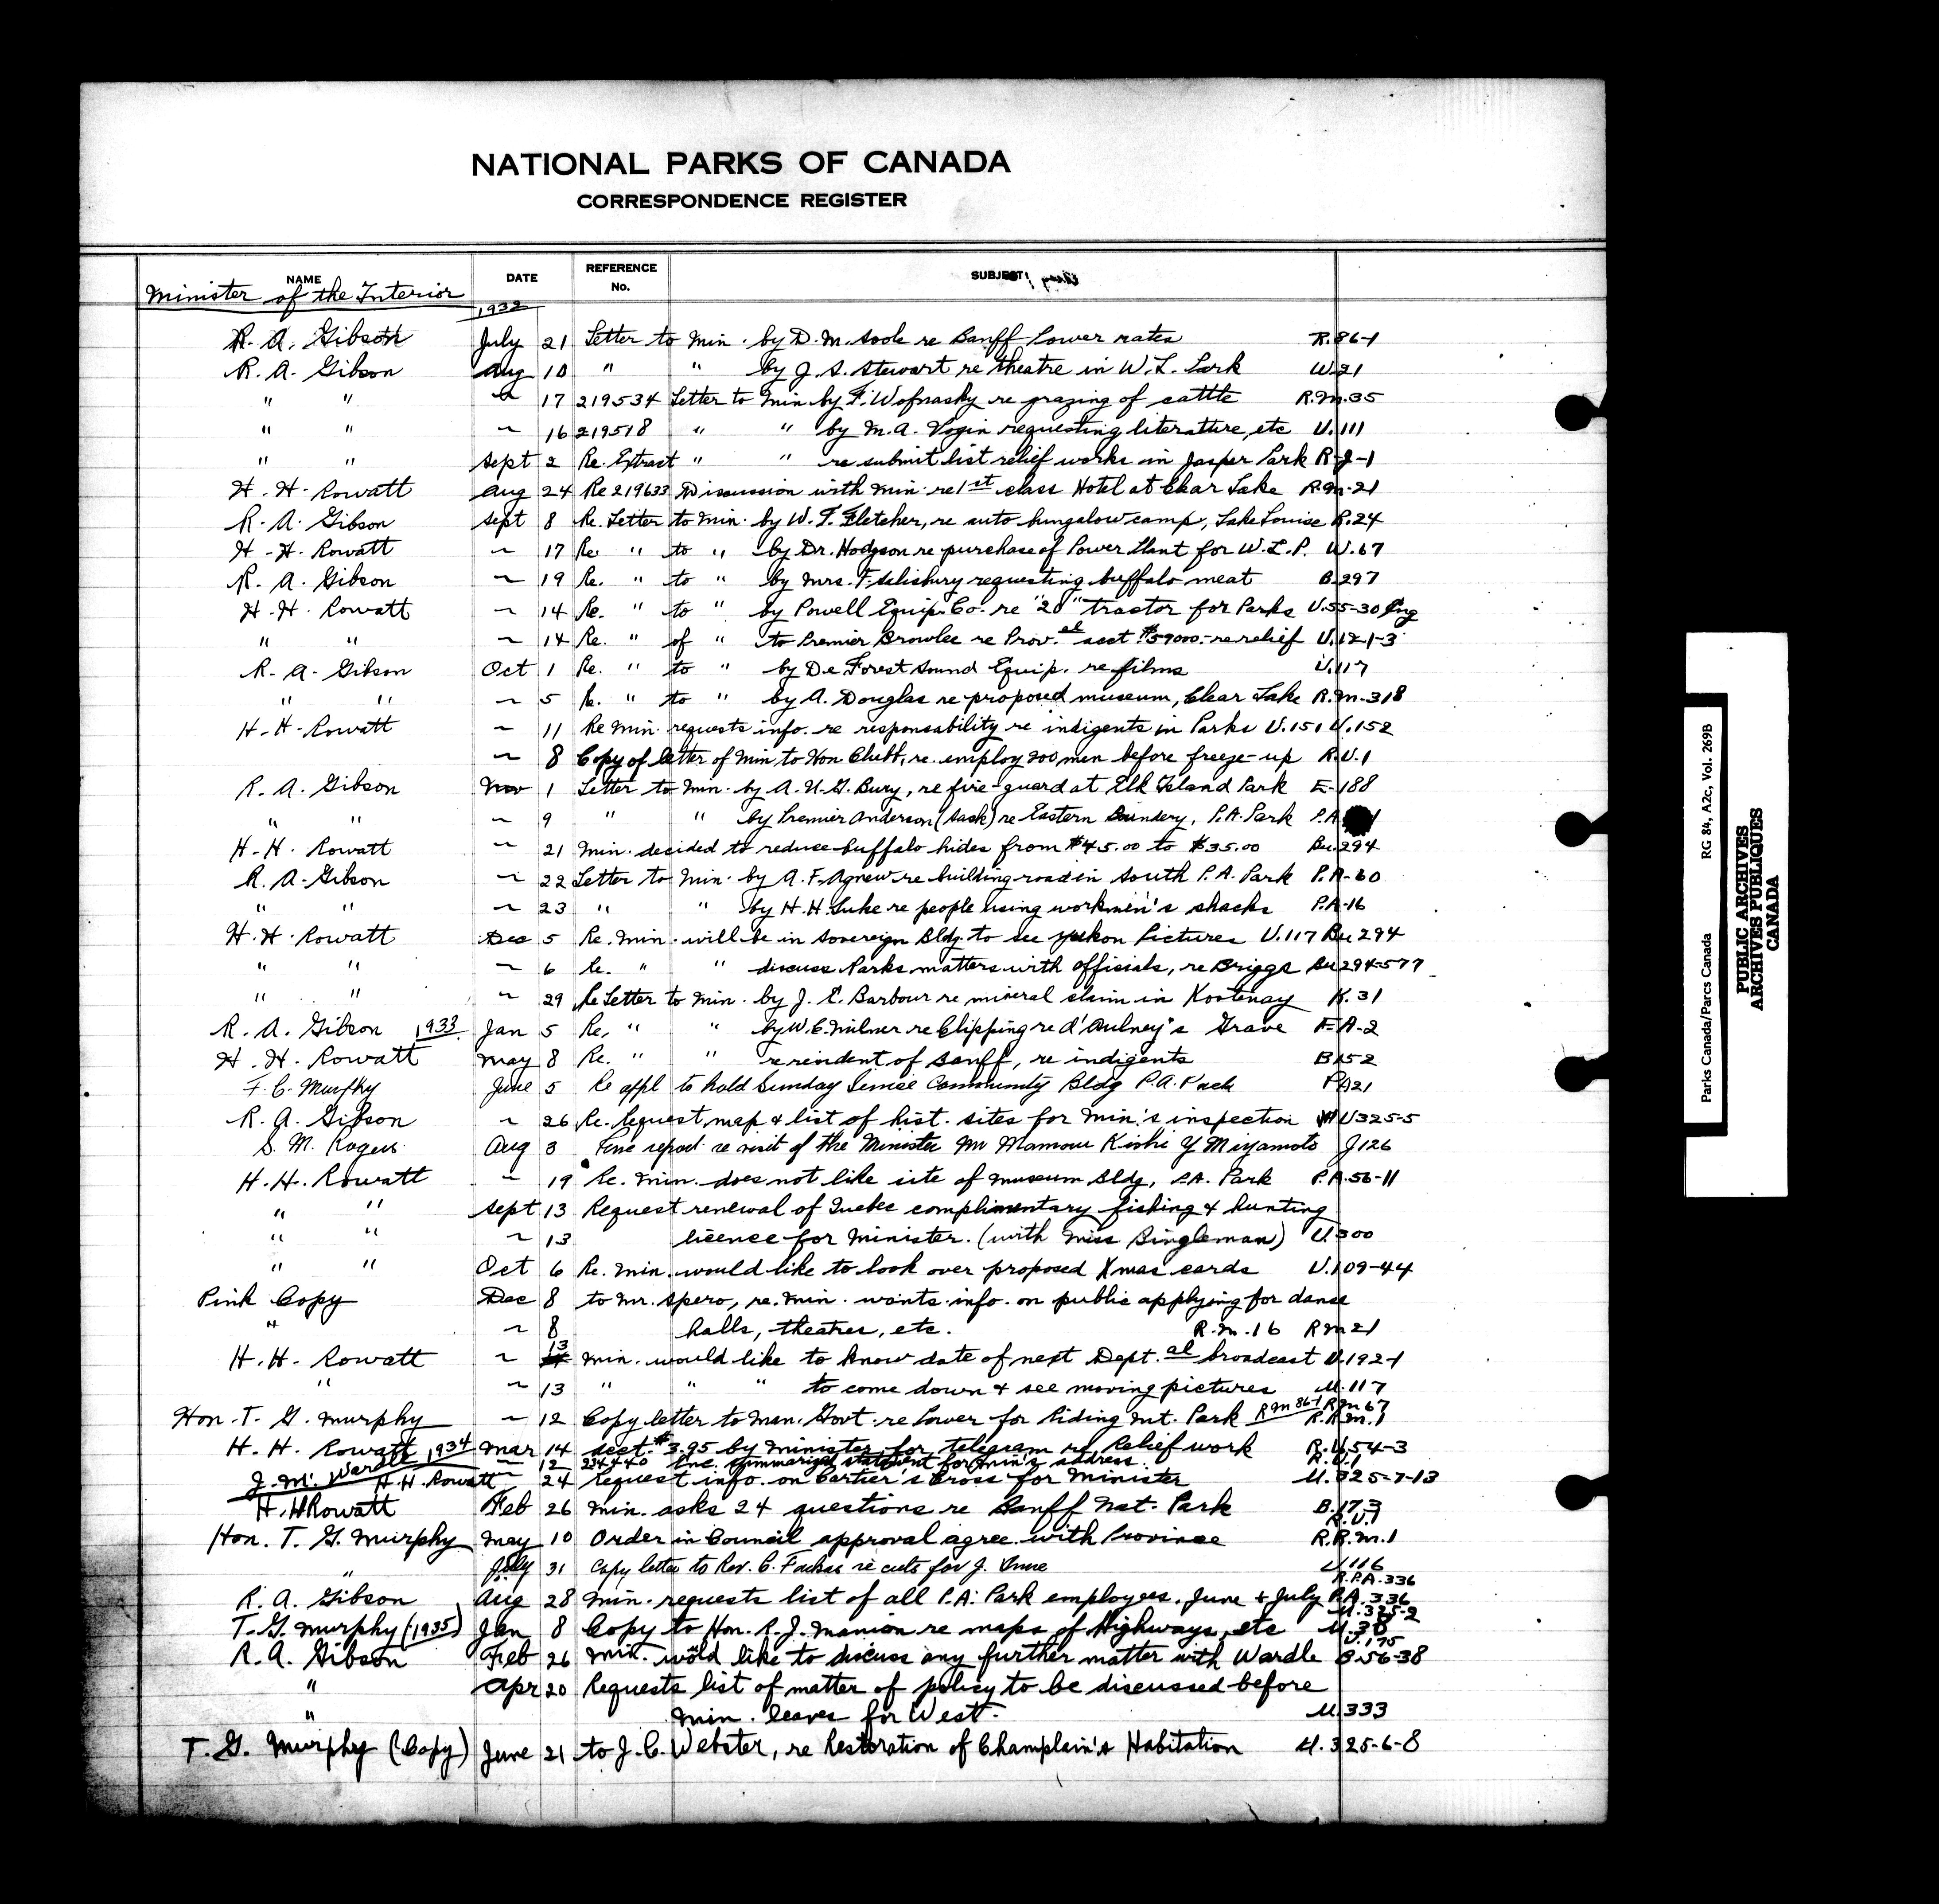 NATIONAL PARKS OF CANADA
CORRESPONDENCE REGISTER
NAME DATE REFERENCE No. SUBJECT
Minister of the Interior
1932
R. A. Gibson July 21 Letter to Min. by D. M. Soole re Banff Power rates R.86-1
R. A. Gibson Aug 10 " " by J. S. Stewart re theatre in W. L. Park W.21
" " ~ 17 219534 Letter to Min by F. re grazing of cattle R.M.35
" " ~ 16 219518 " " by M. A. Vogin requesting literature, etc U.111
" " Sept 2 Re. Extract " " re submit list relief works in Jasper Park R-J-1
H. H. Rowatt Aug 24 Re 219633 Discussion with Min. re 1st class Hotel at Clear Lake R.M-21
R. A. Gibson Sept 8 Re. Letter to Min. by W. F. Fletcher, re auto bungalow camp, Lake Louise R.24
H. H. Rowatt ~ 17 Re. " to " by Dr. Hodgson re purchase of Power Plant for W. L. P. W.67
R. A. Gibson ~ 19 Re. " to " by Mrs. F. Salisbury requesting buffalo meat B.297
H. H. Rowatt ~ 14 Re. " to " by Powell Equip. Co. re "20" tractor for Parks U.55-30 Eng
" " ~ 14 Re. " of " to Premier Brownlee re Prov.al acct $59000.- re relief U.121-3
R. A. Gibson Oct 1 Re. " to " by De Forest Sound Equip. re films U.117
" " ~ 5 Re. " to " by A. Douglas re proposed museum, Clear Lake R.M-318
H. H. Rowatt ~ 11 Re Min. requests info. re responsability re indigents in Parks U.151 U.152
~ 8 Copy of letter of Min to Hon Clubb, re. employ 200 men before freeze-up R.U.1
R. A. Gibson Nov 1 Letter to Min. by A. U. G. Bury, re fire-guard at Elk Island Park E-188
" " ~ 9 " " by Premier Anderson (Sask) re Eastern Boundery, P.A. Park P.A.
H. H. Rowatt ~ 21 Min. decided to reduce buffalo hides from $45.00 to $35.00 Bu.294
R. A. Gibson ~ 22 Letter to Min. by A. F. Agnew re building road in South P.A. Park P.A-60
" " ~ 23 " " by H. H. Luke re people using workmen's shacks P.A-16
H. H. Rowatt Dec 5 Re. Min. will be in Sovereign Bldg. to see Yukon Pictures U.117 Bu 294
" " ~ 6 Re. " " discuss Parks matters with officials, re Briggs Bu 294-577
" " ~ 29 Re Letter to Min. by J. E. Barbour re mineral claim in Kootenay K.31
R. A. Gibson 1933 Jan 5 Re. " " by W. C. Milner re Clipping re d'Aulney's Grave F.A-2
H. H. Rowatt May 8 Re. " " re resident of Banff, re indigents B152
F. C. Murphy June 5 Re appl to hold Sunday Service Community Bldg P.A. Park PA21
R. A. Gibson ~ 26 Re. Request map & list of hist. sites for Min.'s inspection U325-5
S. M. Rogers Aug 3 Fine report re visit of the Minister Mr Mamoru Kishi Y Miyamoto J126
H. H. Rowatt ~ 19 Re. Min. does not like site of Museum Bldg, P.A. Park P.A.56-11
" " Sept 13 Request renewal of Quebec complimentary fishing & hunting
" " ~ 13 licence for Minister. (with Miss Bingleman) U.300
" " Oct 6 Re. Min. would like to look over proposed Xmas cards U.109-44
Pink Copy Dec 8 to Mr. Spero, re. Min. wants info. on public applying for dance
" ~ 8 halls, theatres, etc. R.M.16 RM 21
H. H. Rowatt ~ 13 Min. would like to know date of next Dept.al broadcast U.192-1
" ~ 13 " " " to come down & see moving pictures U.117
Hon. T. G. Murphy ~ 12 Copy letter to Man. Govt. re Power for Riding Mt. Park RM 86-1 RM 67 R.R.M.1
H. H. Rowatt 1934 Mar 14 acct. $3.95 by Minister for telegram re Relief work R.U.54-3
J. M. Wardle ~ 12 234440 Enc. summarized statement for Min's address. R.U.1
H. H. Rowatt ~ 24 Request info. on Cartier's Cross for Minister U.325-7-13
H. H Rowatt Feb 26 Min. asks 24 questions re Banff Nat. Park B.17.3 R.U.1
Hon. T. G. Murphy May 10 Order in Council approval agree. with Province R.R.M.1
" July 31 Copy letter to Rev. C. re cuts for J. U.116 R.P.A.336
R. A. Gibson Aug 28 Min. requests list of all P.A. Park employees. June & July P.A.336
T. G. Murphy (1935) Jan 8 Copy to Hon. R. J. Manion re maps of Highways, etc U.325-2 U.38
R. A. Gibson Feb 26 Min. would like to discuss any further matter with Wardle U.175 B.56-38
" Apr 20 Requests list of matter of policy to be discussed before
" Min. leaves for West. U.333
T. G. Murphy (Copy) June 21 to J. C. Webster, re Restoration of Champlain's Habitation U.325-6-8
Parks Canada/Parcs Canada RG 84, A2c, Vol. 269B
PUBLIC ARCHIVES
ARCHIVES PUBLIQUES
CANADA